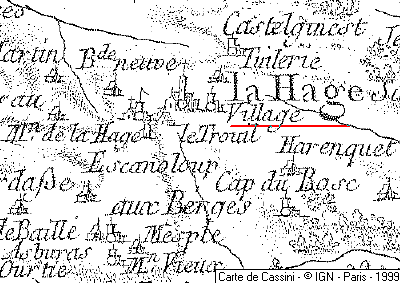 Castelginest
Tuilerie
Martin
Bde neuve
la Hage
Village
Mn. de la Hage
le Trouil
Harenquet
Escanolour
Cap du Bosc
aux Berges
de Baillé
Mesple
Mn Vieux
Carte de Cassini - © IGN - Paris - 1999